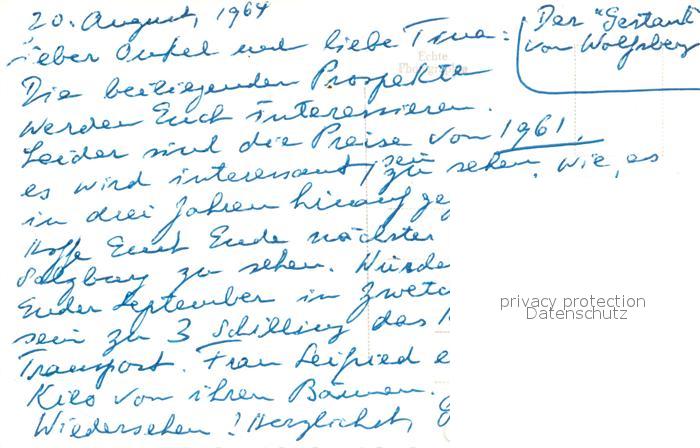 20. August, 1964
Der "Gestank"
von Wolfsberg
Lieber Onkel und liebe Tina:
Echte
Die beiliegenden Prospekte
werden Euch interessieren.
Leider sind die Preise von 1961,
es wird interessant sein zu sehen, wie es
in drei Jahren hinauf ge
Hoffe Euch Ende nächster
Salzburg zu sehen. Würde
Ender September in
sein zu 3 Schilling das
Transport. Frau Leifried
Kilo von ihren Bäumen.
Wiedersehen! Herzlichst,
privacy protection
Datenschutz